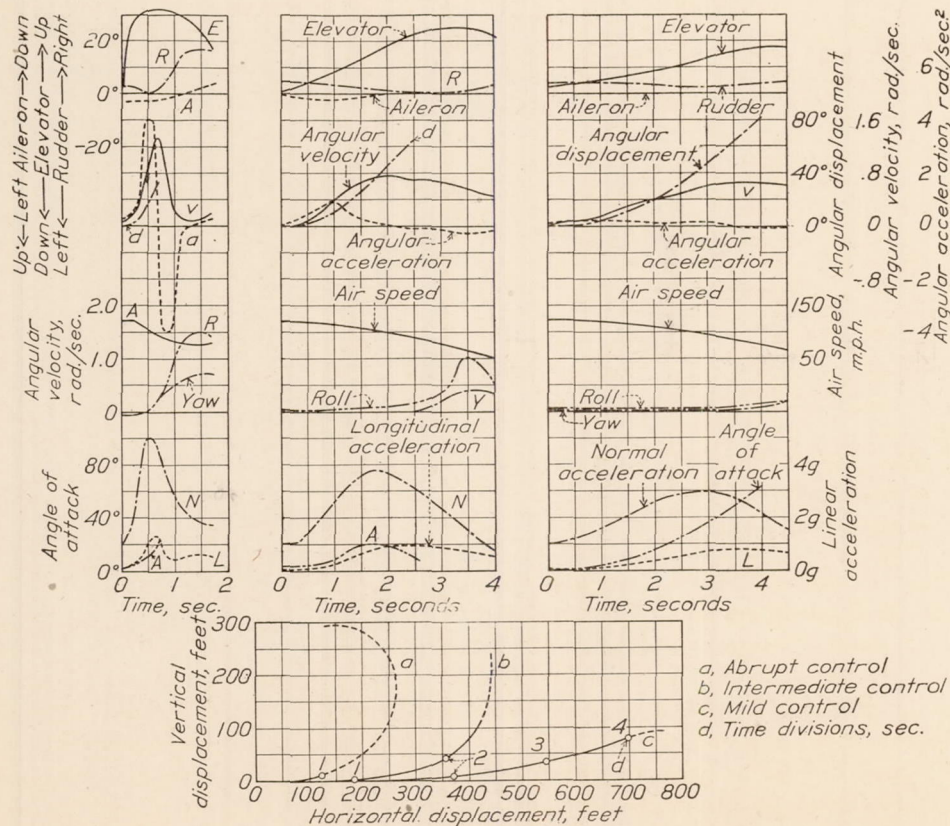 Up<—Left Aileron—>Down
Down<——Elevator——>Up
Left<——Rudder——>Right
20°
0°
-20°
E
R
A
v
d
a
Angular
velocity,
rad./sec.
2.0
1.0
0
A
R
Yaw
Angle of
attack
80°
40°
0°
N
A
L
0 1 2
Time, sec.
Elevator
R
Aileron
Angular
velocity
d
Angular
acceleration
Air speed
Roll
Y
Longitudinal
acceleration
N
A
0 1 2 3 4
Time, seconds
Elevator
Aileron
Rudder
Angular
displacement
v
Angular
acceleration
Air speed
Roll
Yaw
Normal
acceleration
Angle
of
attack
L
0 1 2 3 4
Time, seconds
80°
40°
0°
Angular displacement
1.6
.8
0
-.8
Angular velocity, rad./sec.
6
4
2
0
-2
-4
Angular acceleration, rad/sec.²
150
50
Air speed,
m.p.h.
4g
2g
0g
Linear
acceleration
Vertical
displacement, feet
300
200
100
0
a
b
c
d
1
1
2
3
4
0 100 200 300 400 500 600 700 800
Horizontal displacement, feet
a, Abrupt control
b, Intermediate control
c, Mild control
d, Time divisions, sec.